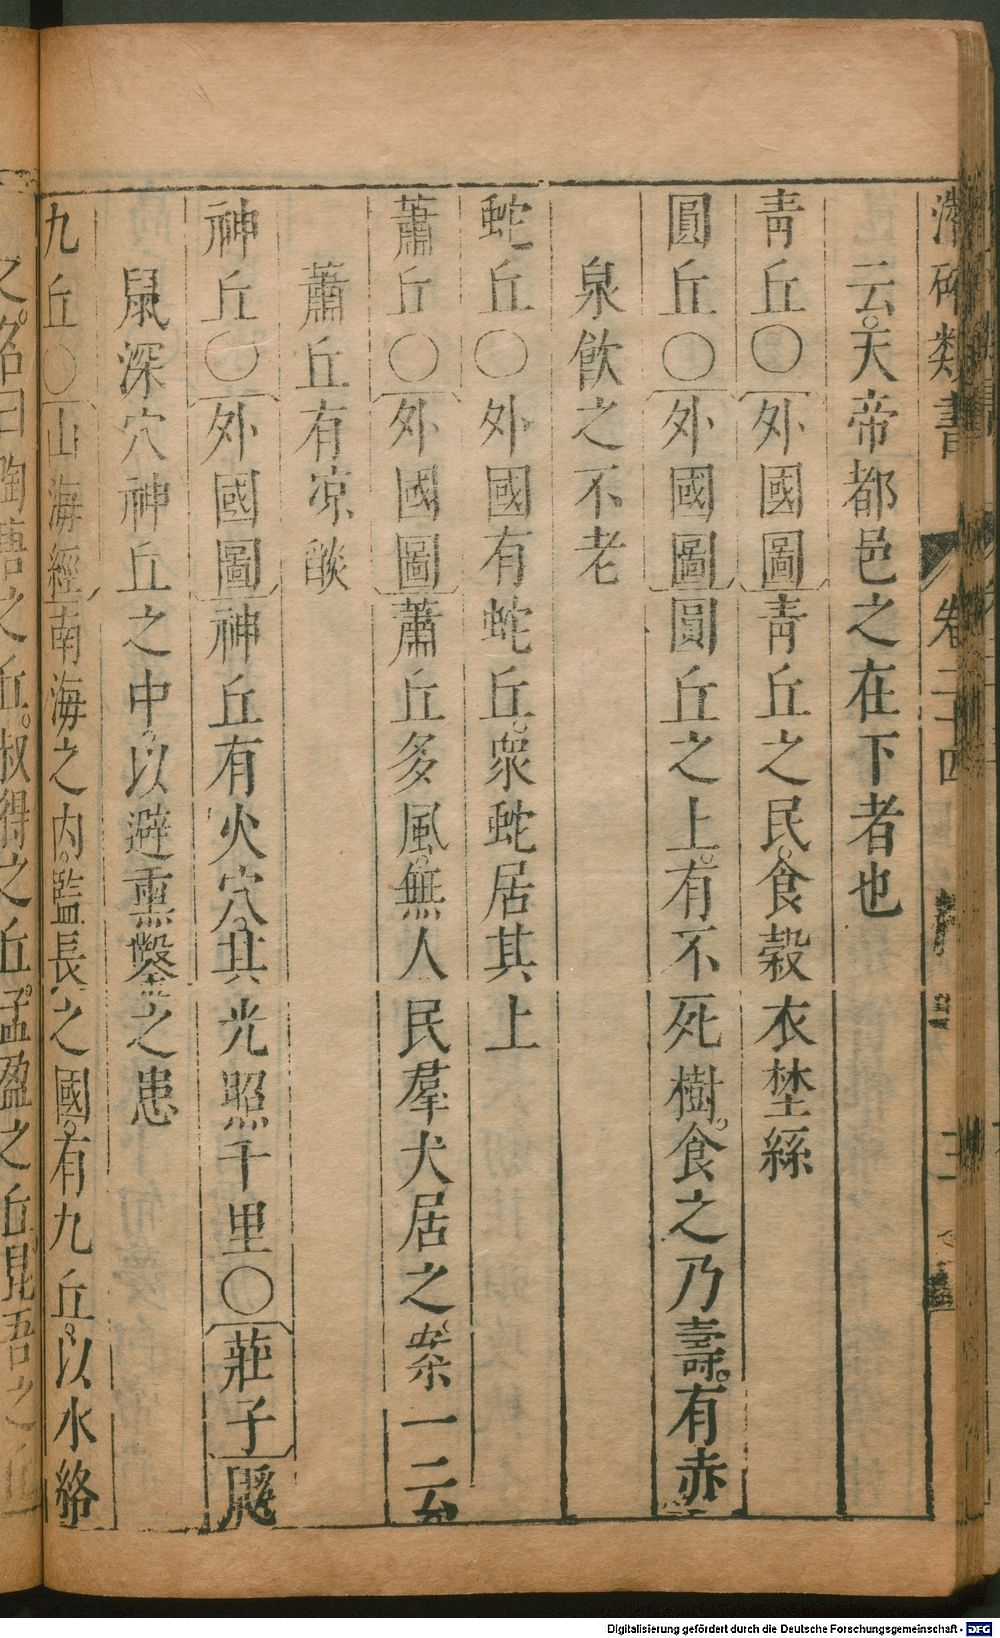 潛碓類書 卷二十四 三
云。天帝都邑之在下者也
青丘〇外國圖青丘之民。食穀衣埜絲
圓丘〇外國圖圓丘之上。有不死樹。食之乃壽。有赤
泉飲之不老
蛇丘〇外國有蛇丘。衆蛇居其上
蕭丘〇外國圖蕭丘多風。無人民羣犬居之案一云
蕭丘有凉燄
神丘〇外國圖神丘有火穴。其光照千里〇莊子鼷
鼠深穴神丘之中。以避熏鑿之患
九丘〇山海經南海之内。監長之國。有九丘。以水絡
之。名曰陶唐之丘。叔得之丘。孟盈之丘昆吾之
Digitalisierung gefördert durch die Deutsche Forschungsgemeinschaft - DFG